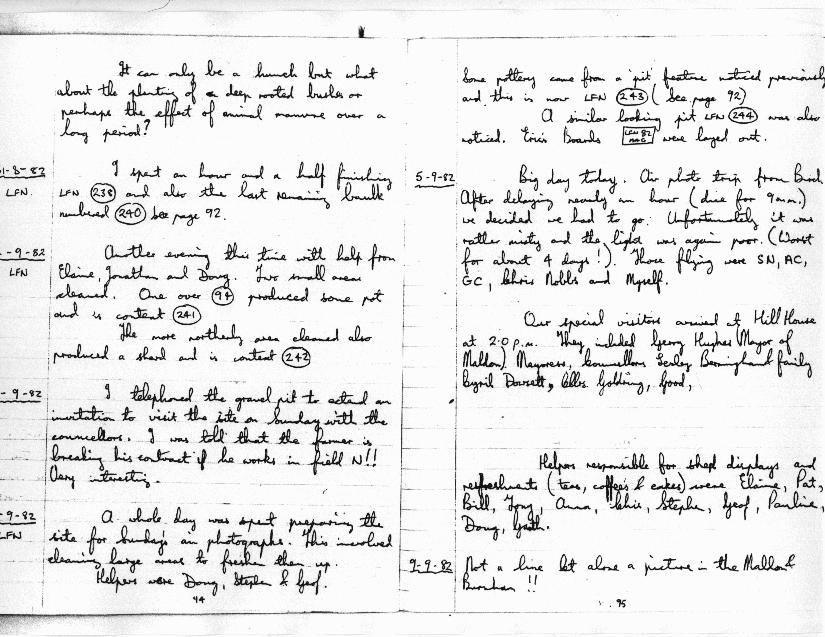 It can only be a hunch but what
about the planting of a deep rooted bushes or
perhaps the effect of animal manure over a
long period?
1-8-82
LFN.
I spent an hour and a half finishing
LFN 238 and also the last remaining baulk
numbered 240 See page 92.
-9-82
LFN
Another evening this time with help from
Elaine, Jonathan and Doug. Two small areas
cleaned. One over 94 produced some pot
and is context 241
The more northerly area cleaned also
produced a shard and is context 242
-9-82
I telephoned the gravel pit to extend an
invitation to visit the site on Sunday with the
councellors. I was told that the farmer is
breaking his contract if he works in field N!!
Very interesting.
-9-82
LFN
A whole day was spent preparing the
site for Sunday's air photographs. This involved
cleaning large areas to freshen them up.
Helpers were Doug, Stephen & Geof.
94
Some pottery came from a pit feature noticed previously
and this is now LFN 243 (See page 92)
A similar looking pit LFN 244 was also
noticed. Eric's Boards LFN 82 were layed out.
5-9-82
Big day today. Air photo trip from
After delaying nearly an hour (due for 9am.)
we decided we had to go. Unfortunately it was
rather misty and the light was again poor. (Worst
for about 4 days!). Those flying were SN, AC,
GC, Chris Nobbs and Myself.
Our special visitors arrived at Hill House
at 2.0 p.m. They included Gerry Hughes (Mayor of
Maldon) Mayoress, Councellors Lesley family
Cyril Dowsett, Cllrs. Golding, Good,
Helpers responsible for shed displays and
refreshments (teas, coffees & cakes) were Elaine, Pat,
Bill, Tony, Anna, Chris, Stephen, Geof, Pauline,
Doug, Garth.
9-9-82
Not a line let alone a picture in the Maldon &
Burnham !!
95